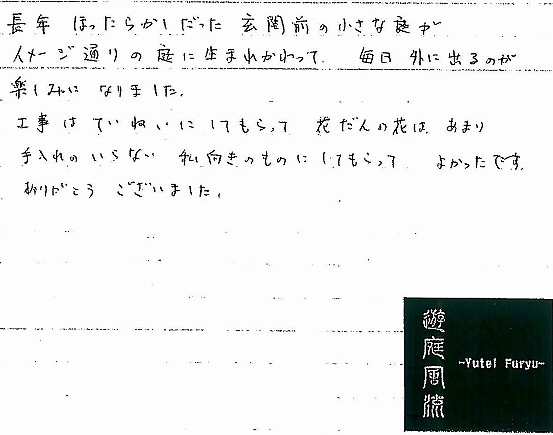 長年 ほったらかしだった 玄関前の小さな庭が
イメージ通りの庭に生まれかわって 毎日外に出るのが
楽しみに なりました。
工事は ていねいにしてもらって 花だんの花は あまり
手入れの いらない 私向きのものにしてもらって よかったです。
ありがとう ございました。
遊庭風流
~Yutei Furyu~